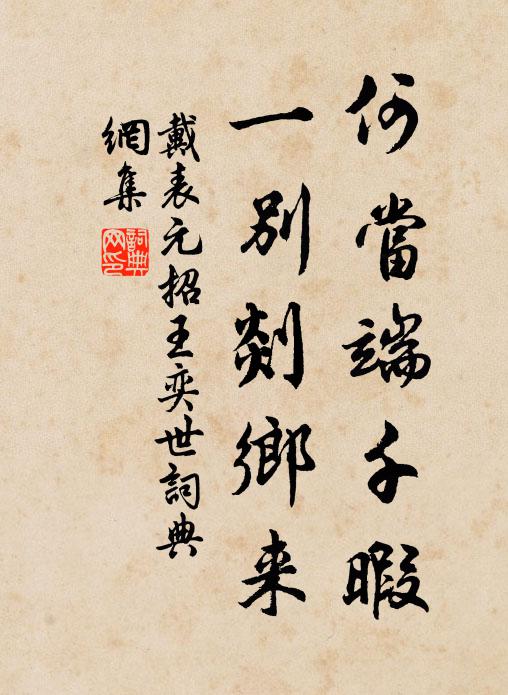 何當端千暇
一別剡鄉来
戴表元招王奕世詞典
網集
詞典
网印